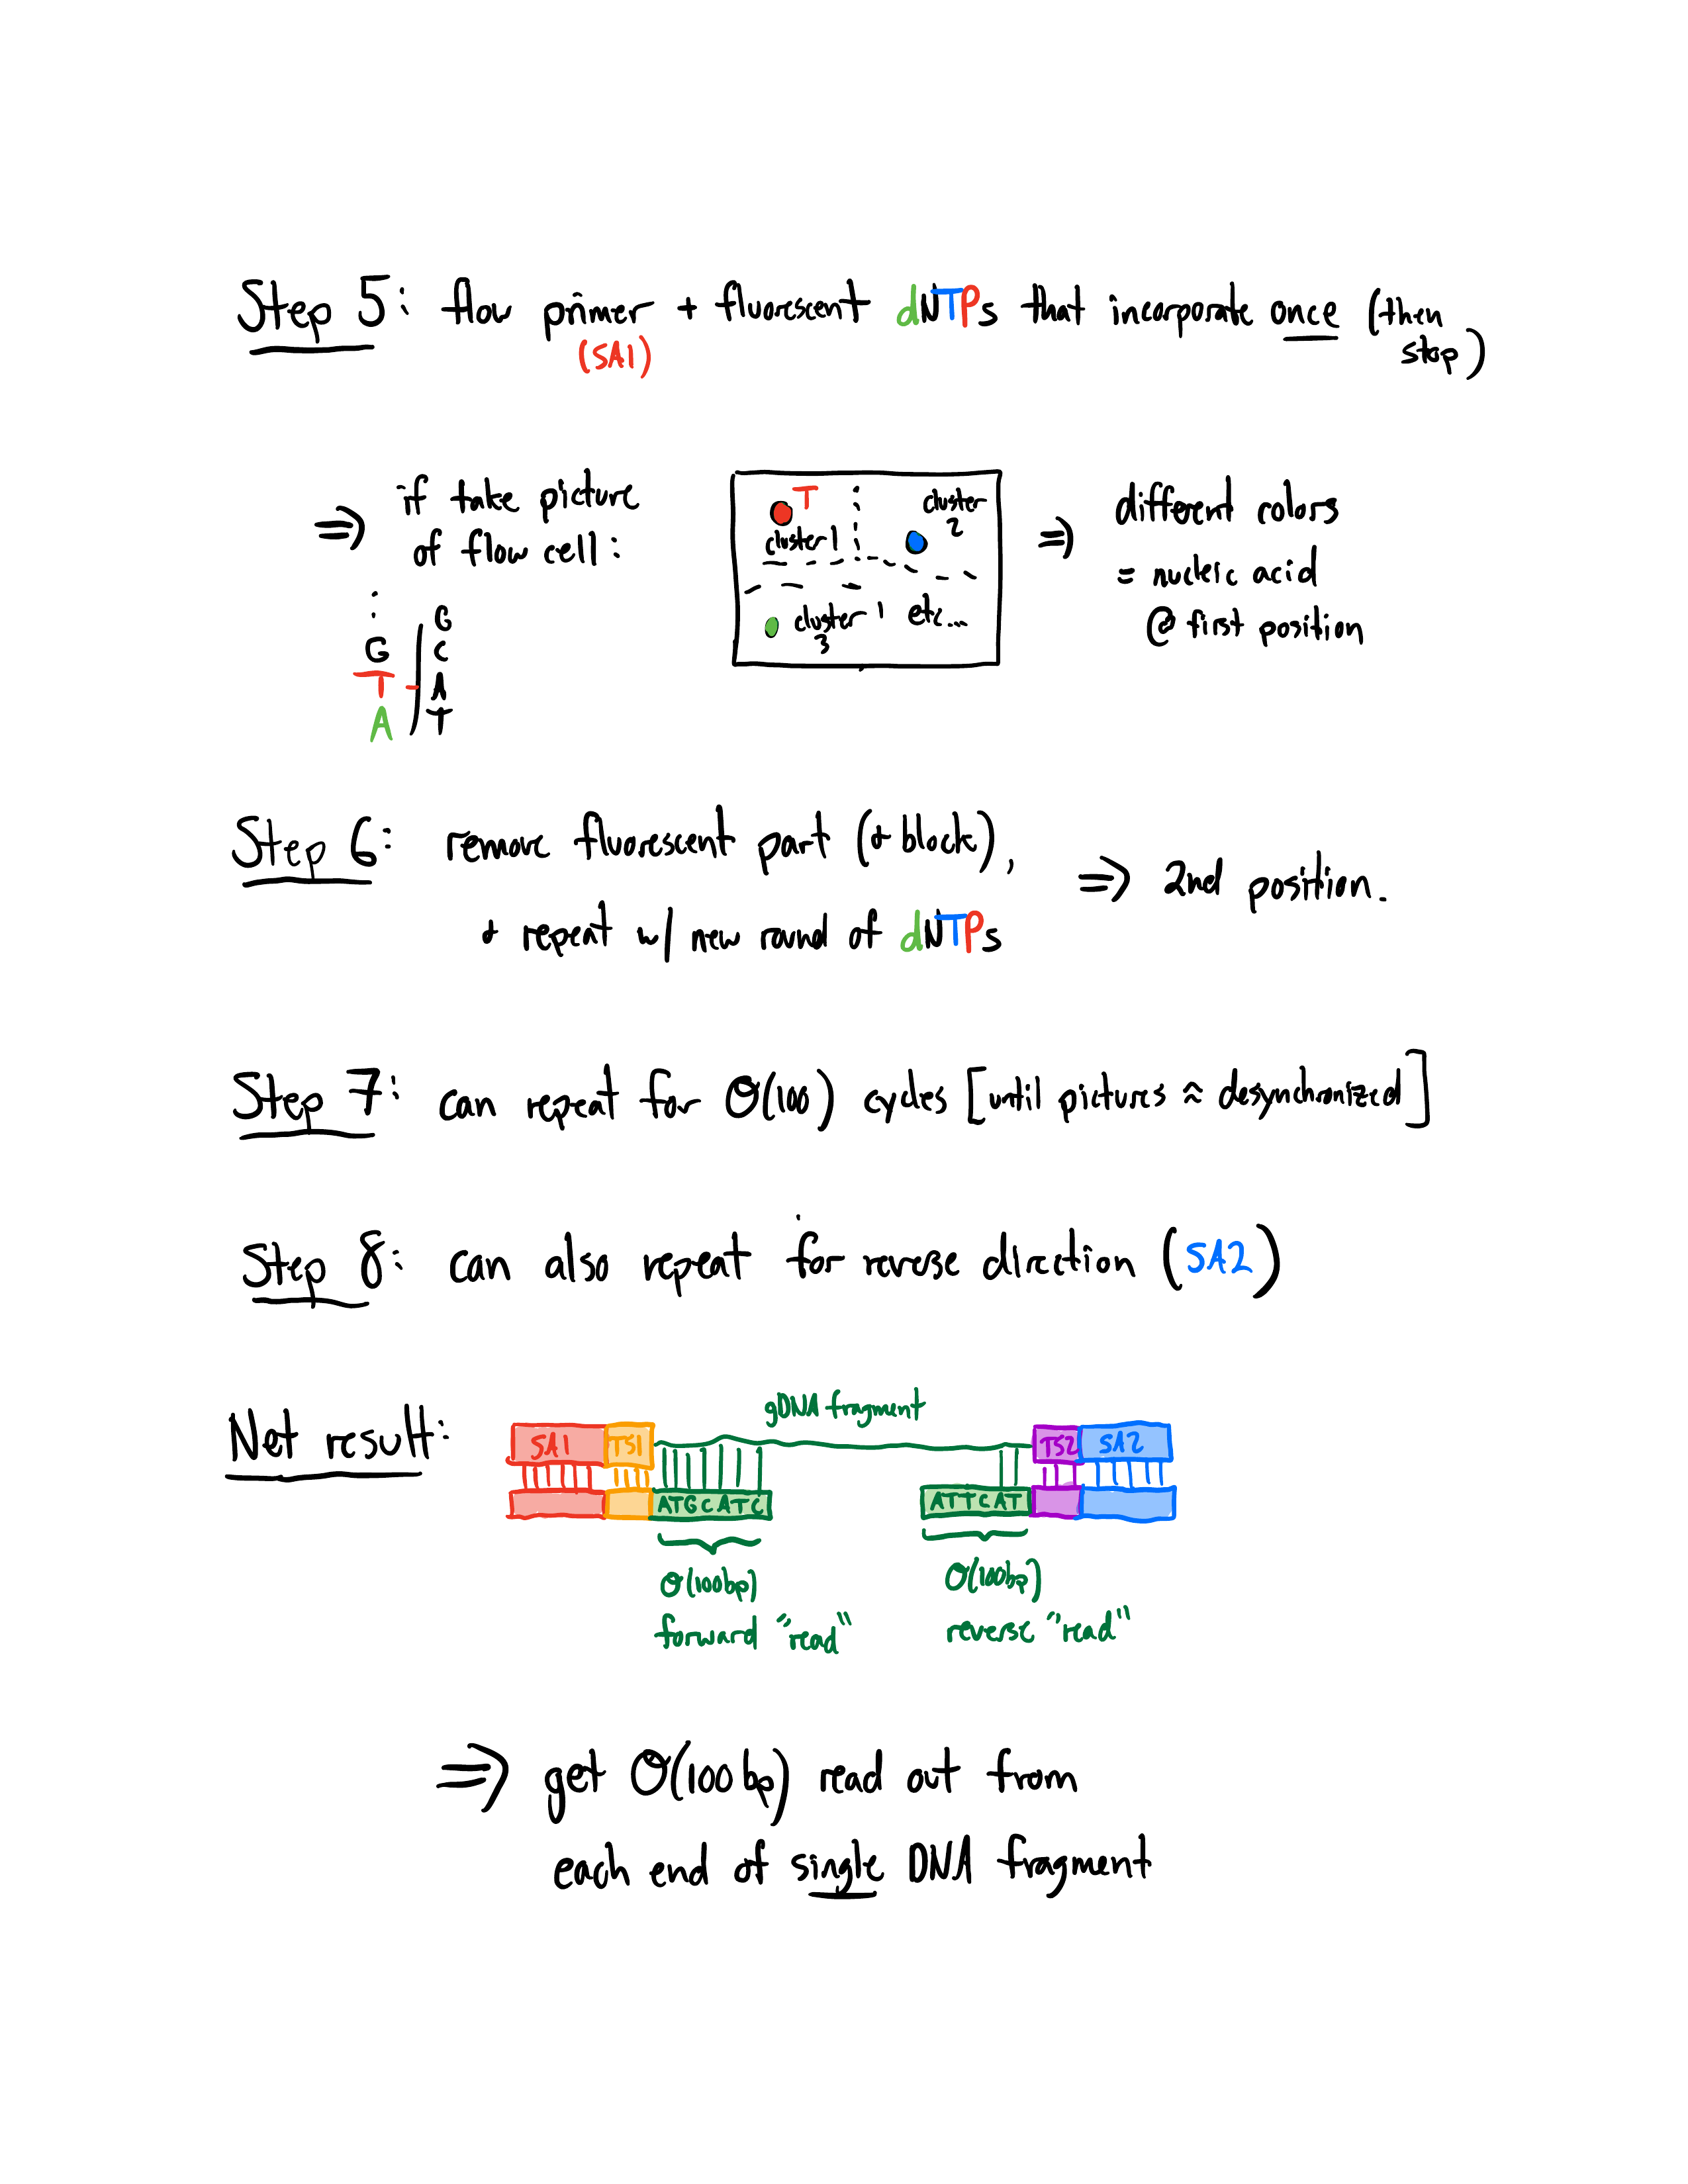 Step 5: flow primer + fluorescent dNTPs that incorporate once (then stop)
(SA1)
⇒ if take picture
of flow cell:
T
cluster 1
cluster
2
cluster
3
etc...
⇒ different colors
= nucleic acid
@ first position
:
G
G C
T - A
A T
Step 6: remove fluorescent part (& block),
& repeat w/ new round of dNTPs
⇒ 2nd position.
Step 7: can repeat for O(100) cycles [until pictures ≈ desynchronized]
Step 8: can also repeat for reverse direction (SA2)
Net result:
gDNA fragment
SA1 TS1 TS2 SA2
ATGCATC ATTCAT
O(100bp)
forward "read"
O(100bp)
reverse "read"
⇒ get O(100bp) read out from
each end of single DNA fragment